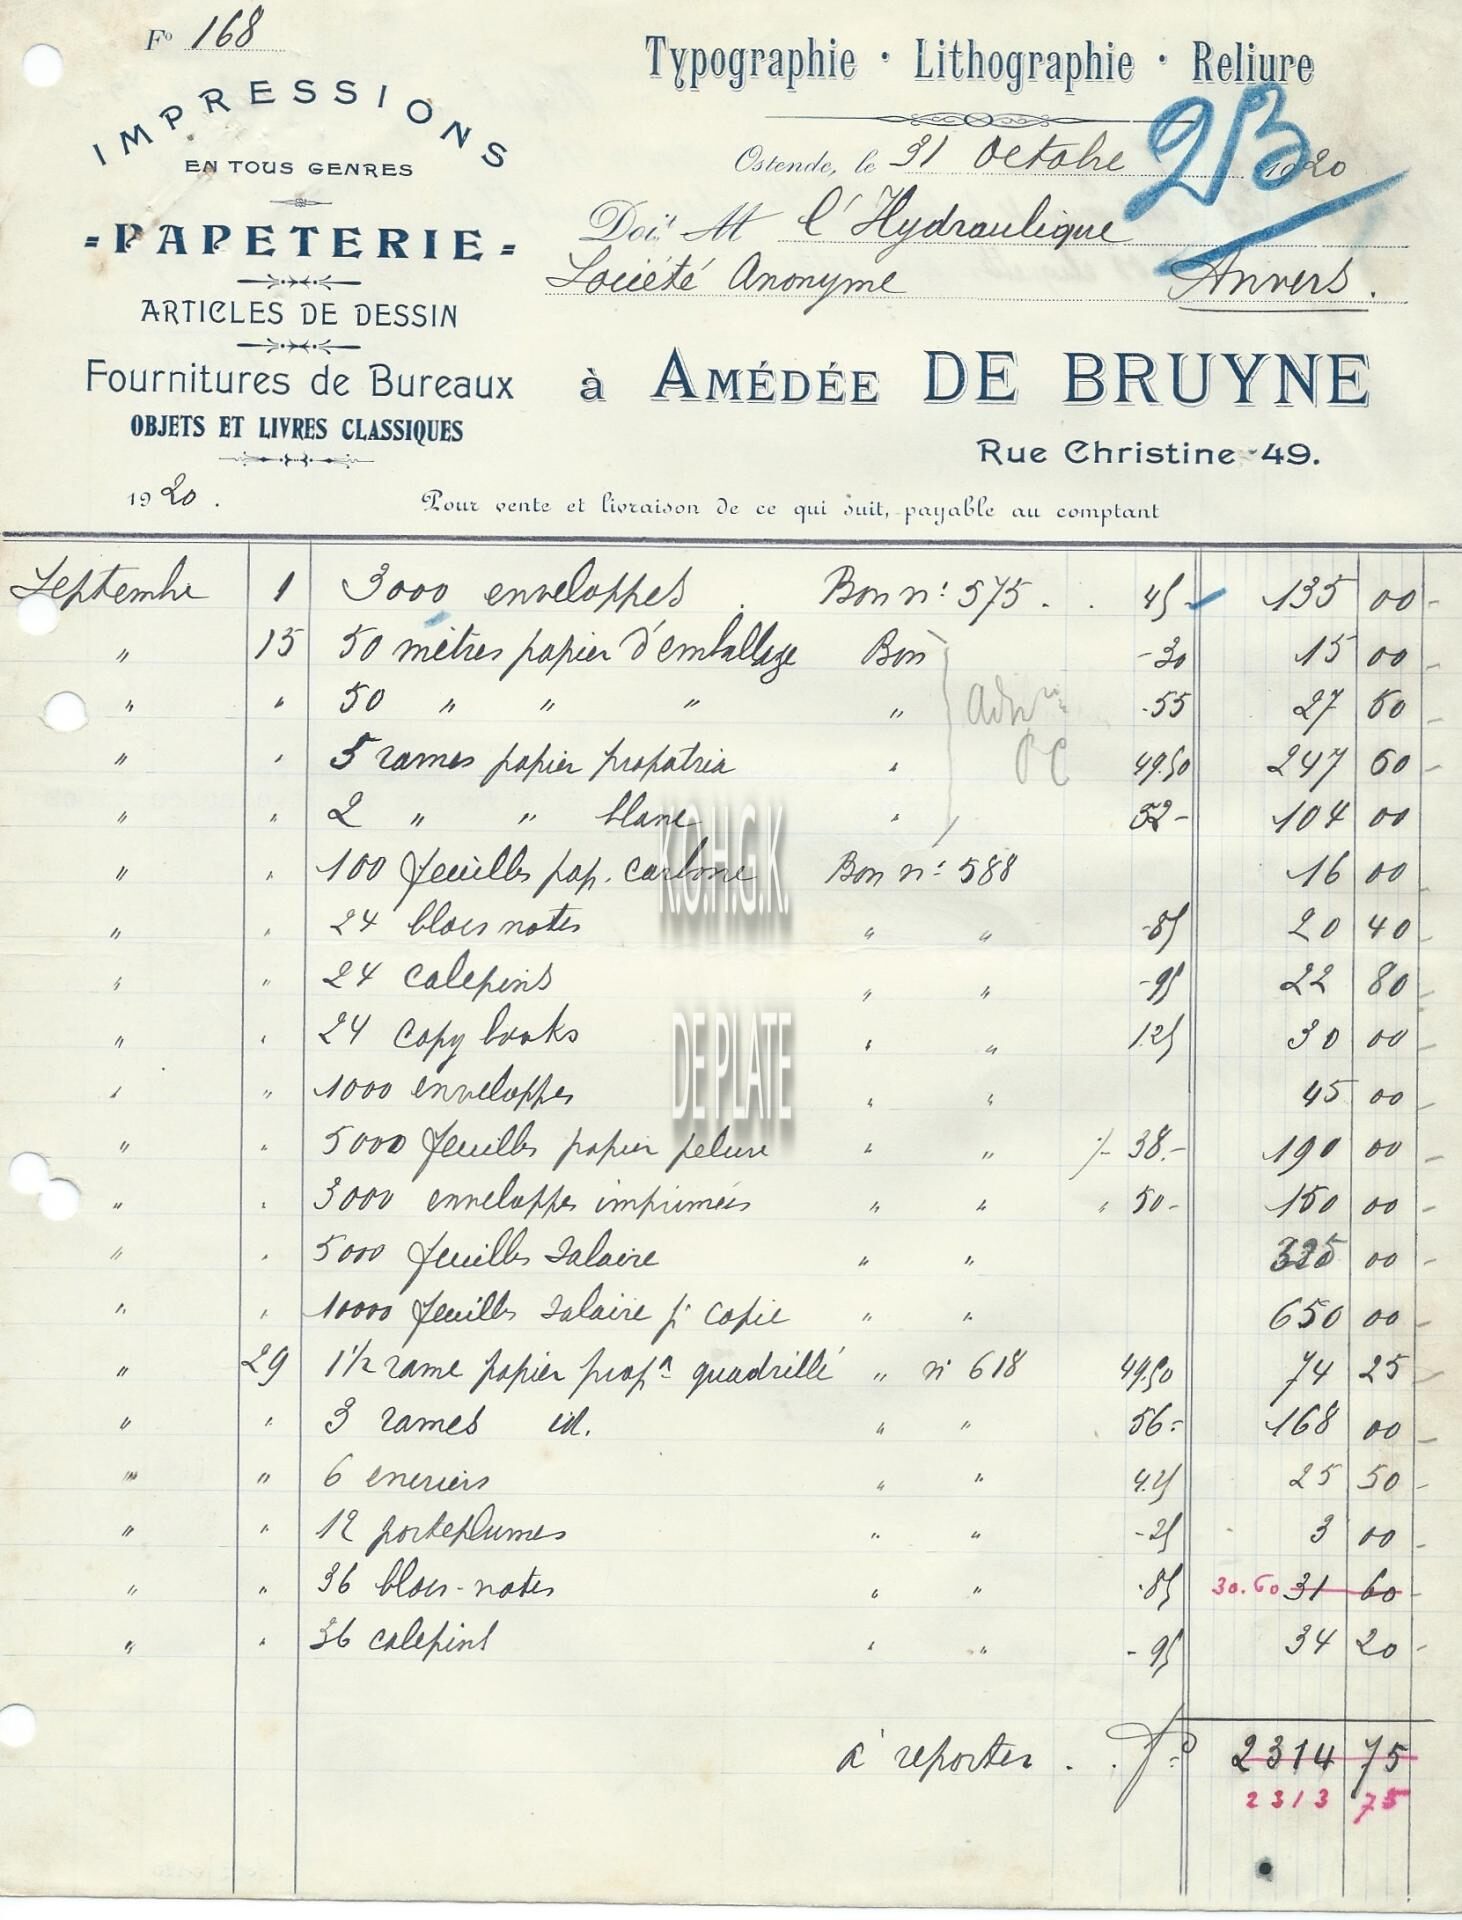 Fº 168
IMPRESSIONS
EN TOUS GENRES
-PAPETERIE-
ARTICLES DE DESSIN
Fournitures de Bureaux
OBJETS ET LIVRES CLASSIQUES
1920.
Typographie · Lithographie · Reliure
23
Ostende, le 31 Octobre 1920
Doit M l'Hydraulique
Société Anonyme Anvers.
à AMÉDÉE DE BRUYNE
Rue Christine 49.
Pour vente et livraison de ce qui suit, payable au comptant
Septembre 1 3000 enveloppes . Bon nº 575 . . 45- 135 00-
" 15 50 mètres papier d'emballage Bon -30 15 00-
" " 50 " " " " -55 27 50-
" " 5 rames papier propatria " 49.50 247 50-
" " 2 " " blanc " 52- 104 00
" " 100 feuilles pap. carbone Bon nº 588 16 00
" " 24 blocs notes " " -85 20 40
" " 24 calepins " " -95 22 80
" " 24 copy books " " 1.25 30 00
" " 1000 enveloppes " " 45 00
" " 5000 feuilles papier pelure " " 38.- 190 00-
" " 3000 enveloppes imprimées " " " 50- 150 00-
" " 5000 feuilles salaire " " 325 00-
" " 10000 feuilles salaire pr copie " " 650 00-
" 29 1 1/2 rame papier propª quadrillé " nº 618 49.50 74 25
" " 3 rames id. " " 56- 168 00
" " 6 encriers " " 4.25 25 50-
" " 12 porteplumes " " -25 3 00-
" " 36 blocs-notes " " -85 30.60 31 60-
" " 36 calepins " " -95 34 20-
à reporter . . fº 2314 75
2313 75
K.O.H.G.K.
DE PLATE